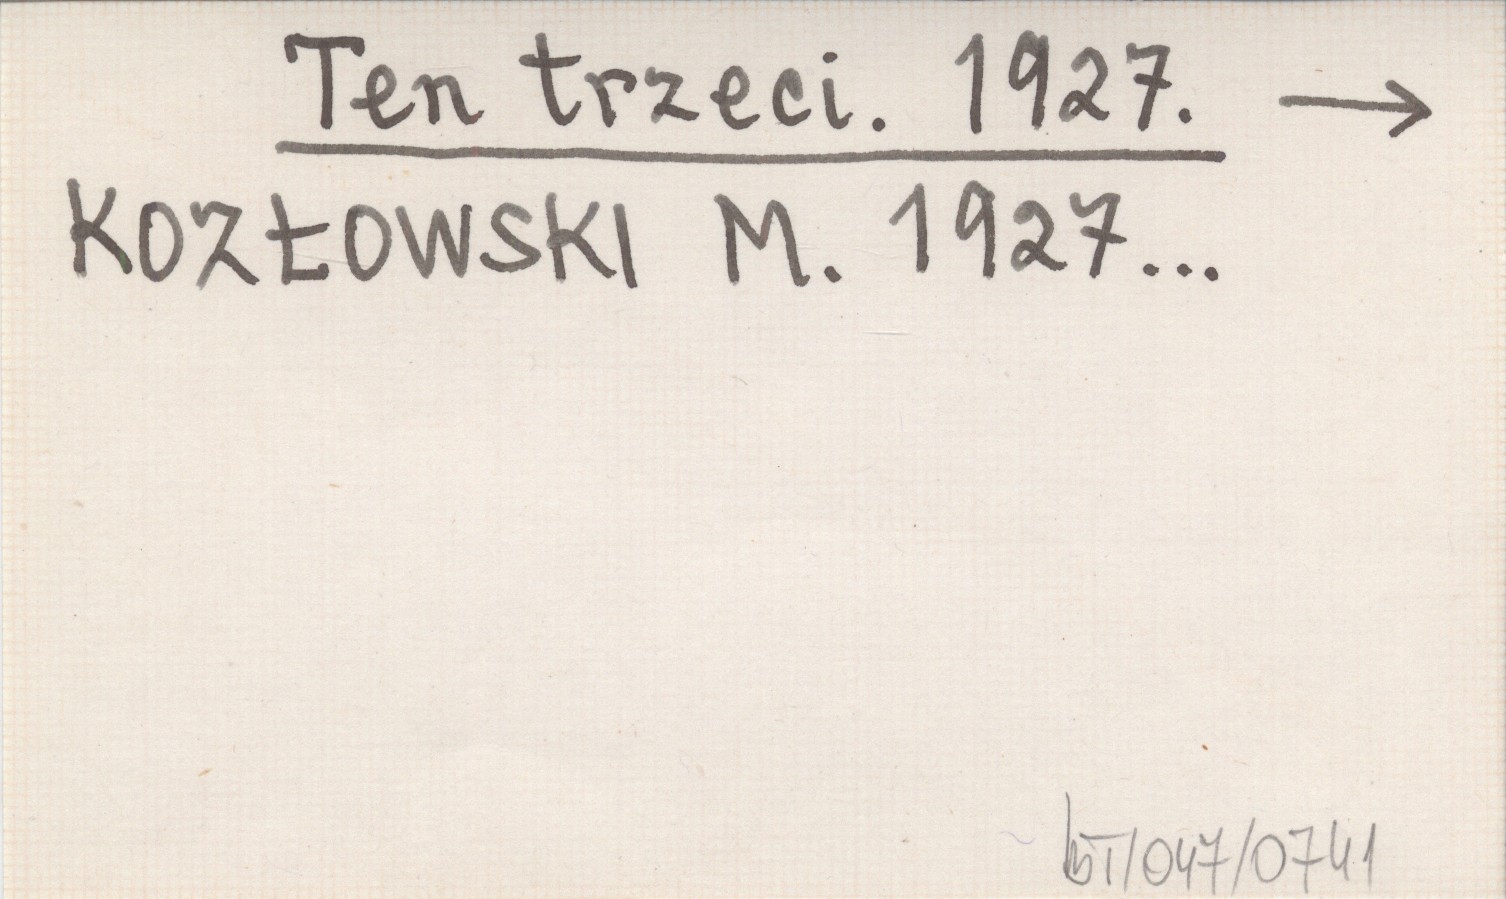 Ten trzeci. 1927. →
KOZŁOWSKI M. 1927...
/047/0741